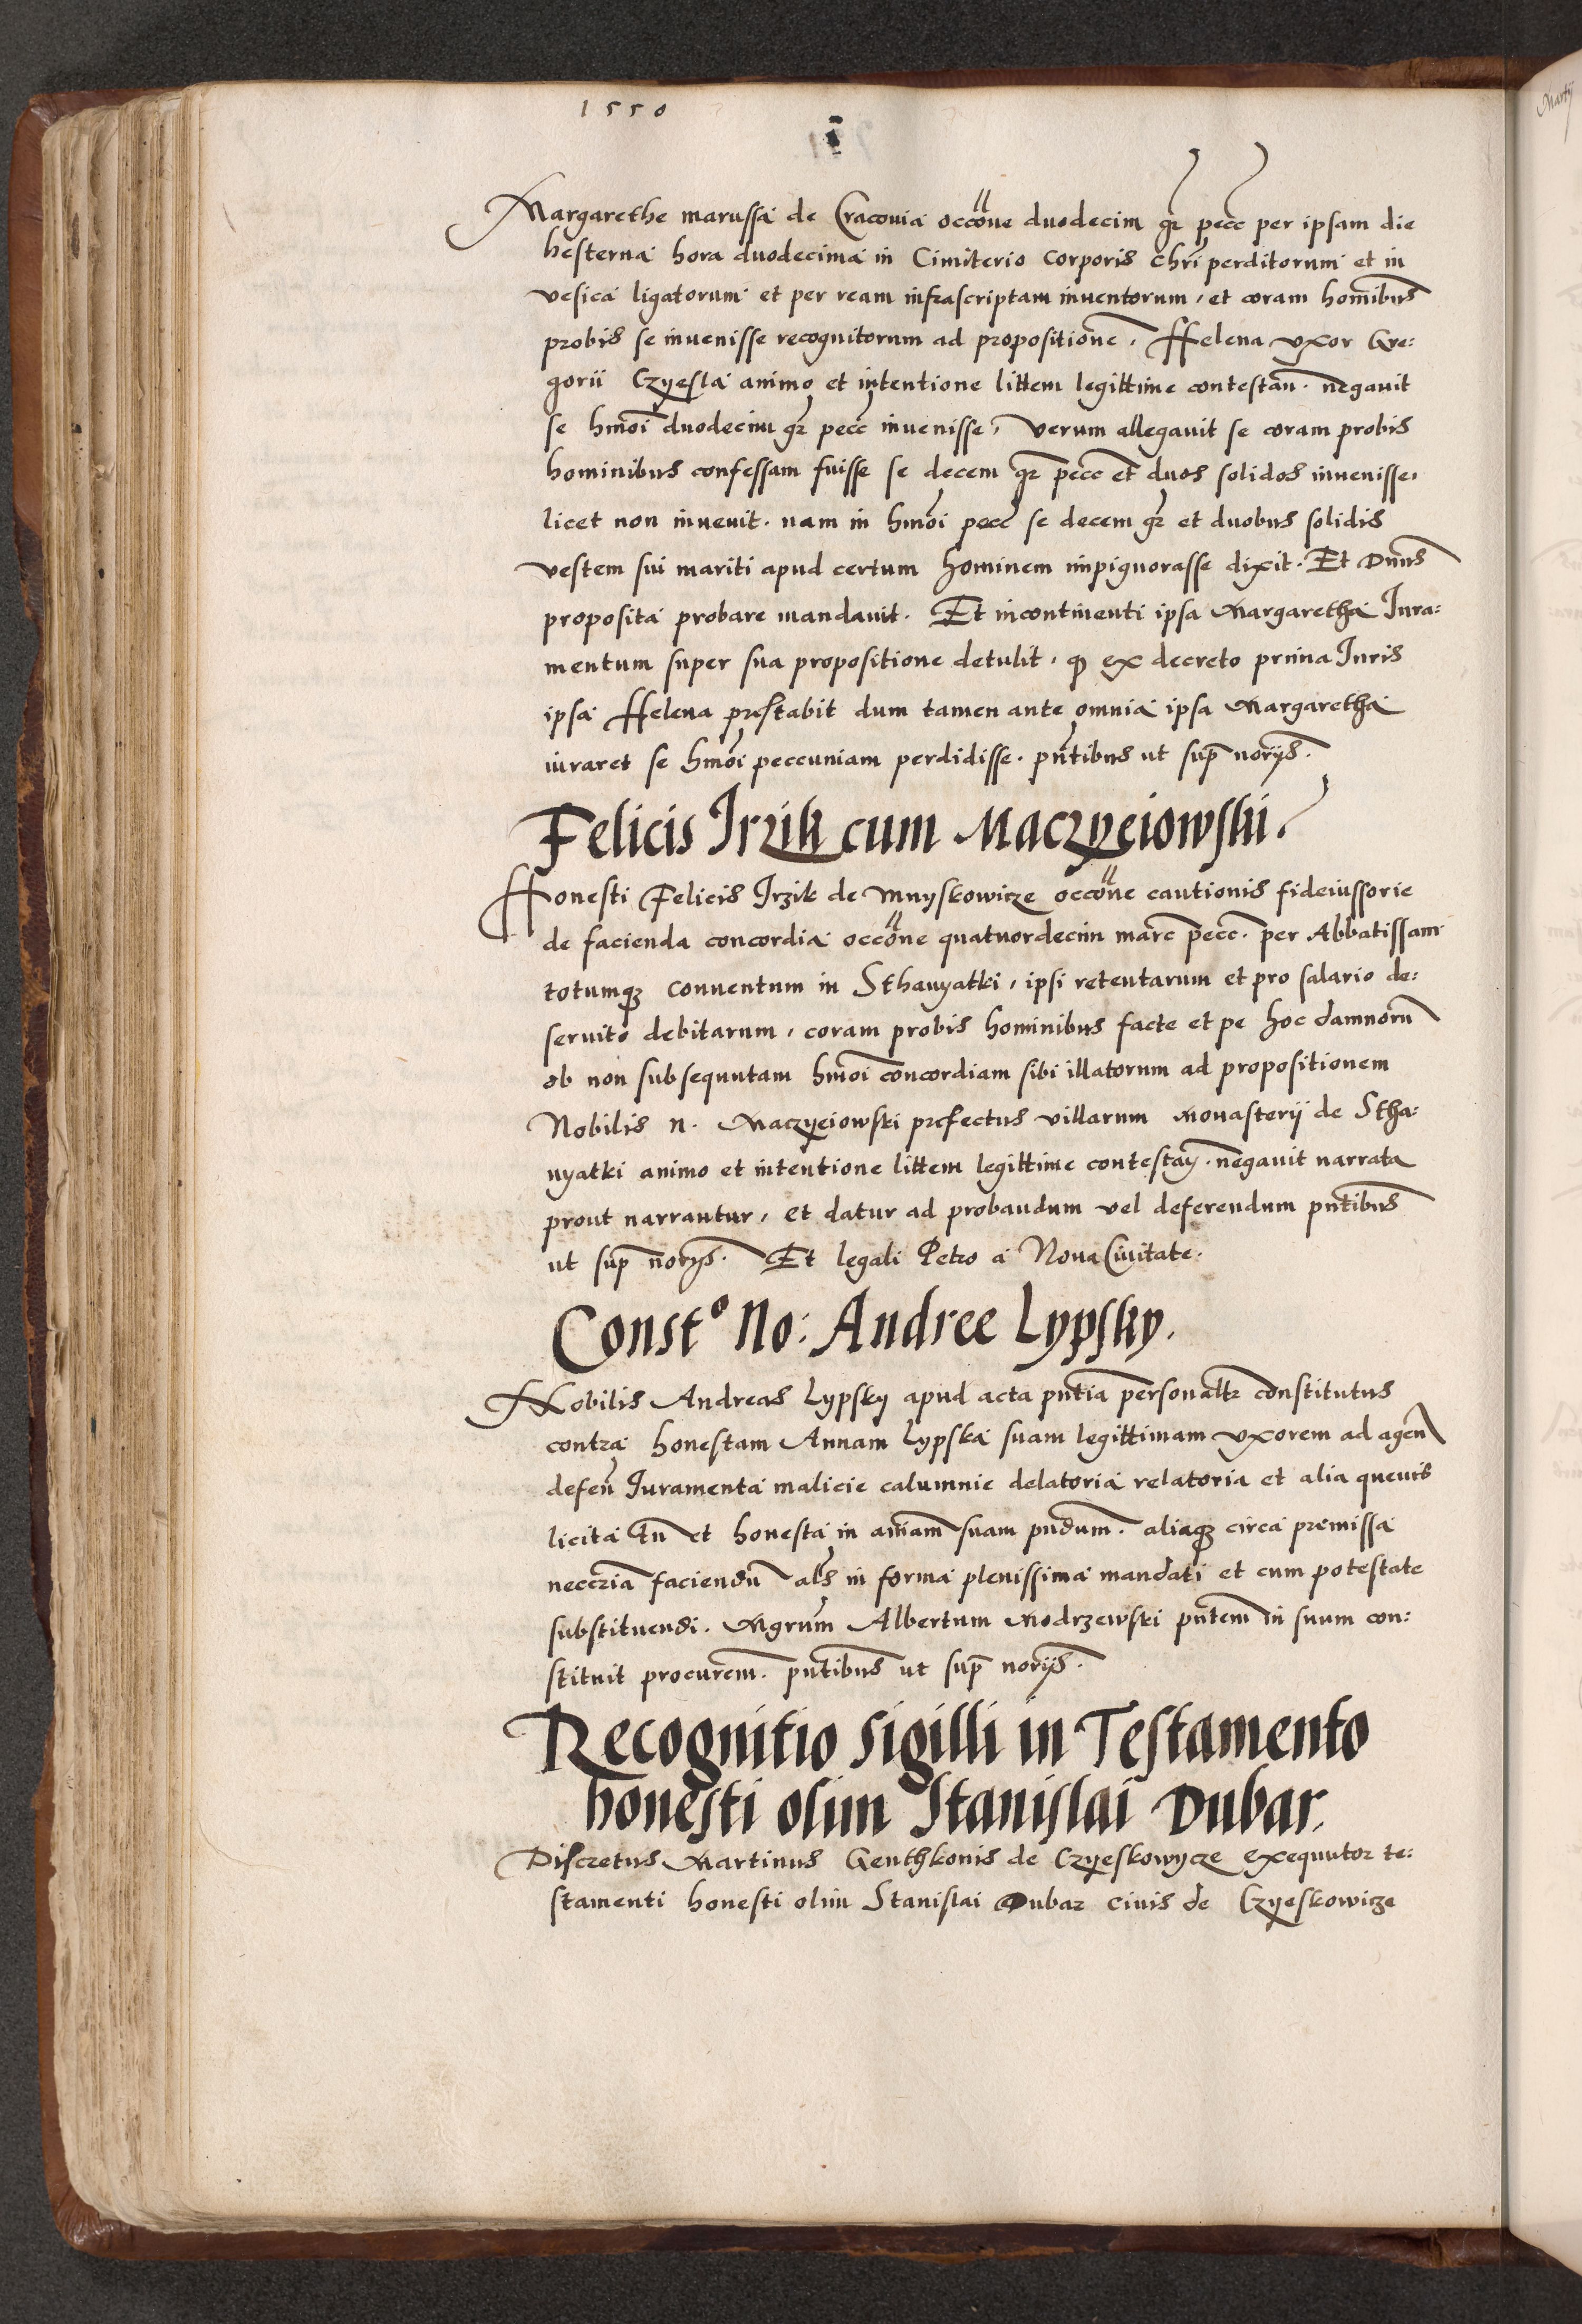 1550
Margarethe marussa de Cracovia occõne duodecim gr pecc per ipsam die
hesterna hora duodecima in Cimiterio Corporis chri perditorum et in
vesica ligatorum et per ream infrascriptam inventorum, et coram hominibus
probis se invenisse recognitorum ad propositione, Helena vxor Gre:
gorii Czyesla animo et intentione littem legittime contestan. negauit
se hmoi duodecim gr pecc invenisse, verum allegauit se coram probis
hominibus confessam fuisse se decem gr pecc et duos solidos invenisse,
licet non invenit. nam in hmoi pecc se decem gr et duobus solidis
vestem sui mariti apud certum hominem impignorasse dixit. Et Dnus
proposita probare mandauit. Et incontinenti ipsa Margaretha Jura:
mentum super sua propositione detulit, qd ex decreto prima Juris
ipsa Helena prestabit dum tamen ante omnia ipsa Margaretha
iuraret se hmoi peccuniam perdidisse. pntibus ut sup noriis.
Felicis Jrzik cum Maczyeiowski.
Honesti Felicis Jrzik de Mnyskowicze occõne cautionis fideiussorie
de facienda concordia occõne quatuordecim marc pecc. per Abbatissam
totumqz conventum in Sthanyatki, ipsi retentarum et pro salario de:
seruito debitarum, coram probis hominibus facte et pe hoc damnoru
ob non subsequutam hmoi concordiam sibi illatorum ad propositionem
Nobilis N. Maczyeiowski prefectus villarum monasterij de Stha:
nyatki animo et intentione littem legittime contestan. negauit narrata
prout narrantur, et datur ad probandum vel deferendum pntibus
ut sup norijs. Et legali Petro a Noua Ciuitate.
Const° No: Andree Lypsky.
Nobilis Andreas Lypsky apud acta pntia personaltr constitutus
contra honestam Annam Lypska suam legittimam vxorem ad agen
defen Juramenta malicie calumnie delatoria relatoria et alia quevis
licita tn et honesta in aniam suam pndum. aliaqz circa premissa
neccria faciendu als in forma plenissima mandati et cum potestate
substituendi. Mgrum Albertum Modrzewski pntem in suum con:
stituit procurem. pntibus ut sup noriis.
Recognitio sigilli in Testamento
honesti olim Stanislai Dubar.
Discretus Martinus Genthkonis de Czyeskowycze exequutor te:
stamenti honesti olim Stanislai Dubar ciuis de Czyeskowicze